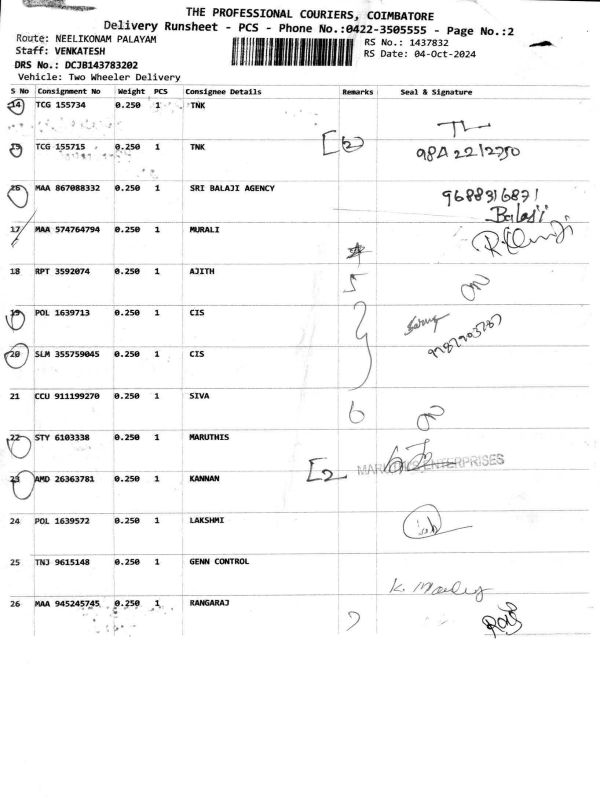 THE PROFESSIONAL COURIERS, COIMBATORE
Delivery Runsheet - PCS - Phone No.:0422-3505555 - Page No.:2
Route: NEELIKONAM PALAYAM
RS No.: 1437832
Staff: VENKATESH
RS Date: 04-Oct-2024
DRS No.: DCJB143783202
Vehicle: Two Wheeler Delivery
S No Consignment No Weight PCS Consignee Details Remarks Seal & Signature
14 TCG 155734 0.250 1 TNK
15 TCG 155715 0.250 1 TNK [2 9842212750
16 MAA 867088332 0.250 1 SRI BALAJI AGENCY 9688916871
Balaji
17 MAA 574764794 0.250 1 MURALI
18 RPT 3592074 0.250 1 AJITH 5 ON
19 POL 1639713 0.250 1 CIS
20 SLM 355759045 0.250 1 CIS
21 CCU 911199270 0.250 1 SIVA 6 ON
22 STY 6103338 0.250 1 MARUTHIS
MARUTHIS ENTERPRISES
23 AMD 26363781 0.250 1 KANNAN [2
24 POL 1639572 0.250 1 LAKSHMI
25 TNJ 9615148 0.250 1 GENN CONTROL
26 MAA 945245745 0.250 1 RANGARAJ 7